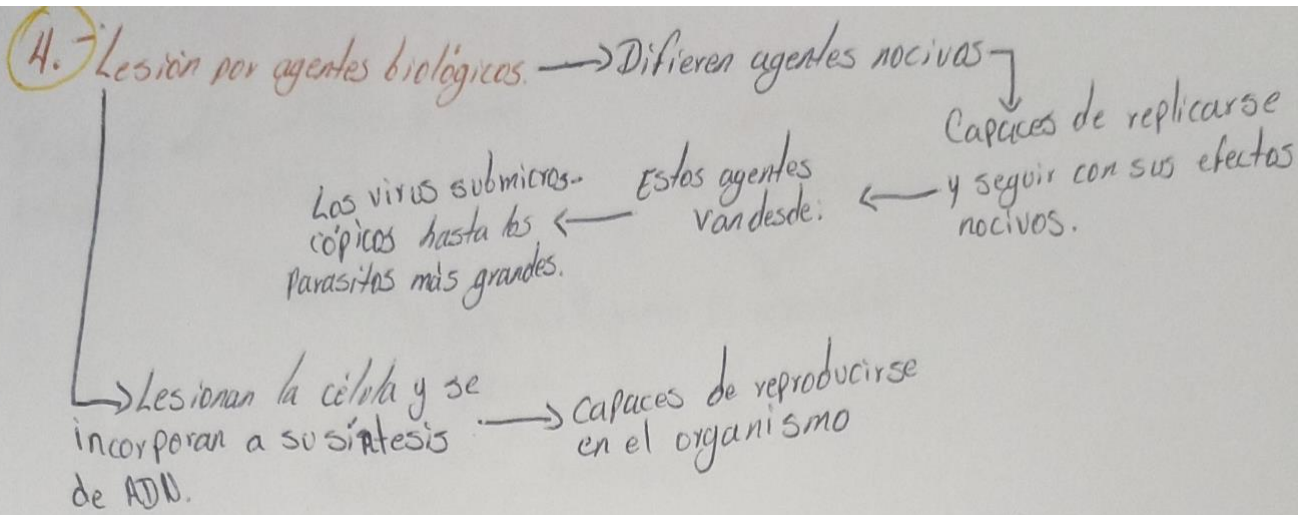 4.- Lesión por agentes biológicos. → Difieren agentes nocivos
Capaces de replicarse
y seguir con sus efectos
nocivos.
Estos agentes
van desde:
Los virus submicros-
cópicos hasta los
parasitos más grandes.
Lesionan la célula y se
incorporan a su síntesis
de ADN.
Capaces de reproducirse
en el organismo